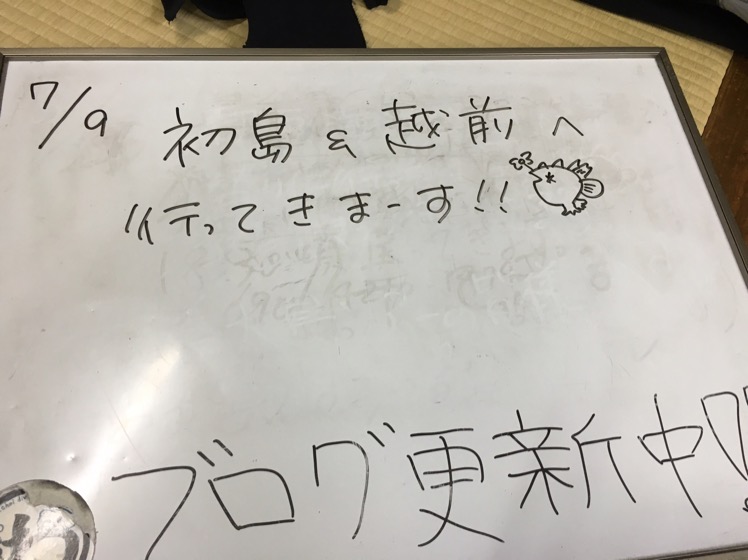 7/9
初島&越前へ
行ってきまーす!!
ブログ更新中!!